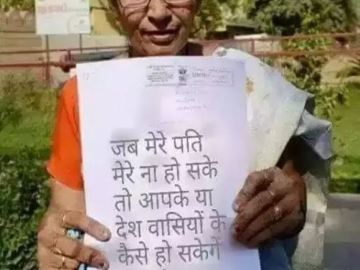 जब मेरे पति
मेरे ना हो सके
तो आपके या
देश वासियों के
कैसे हो सकेगें